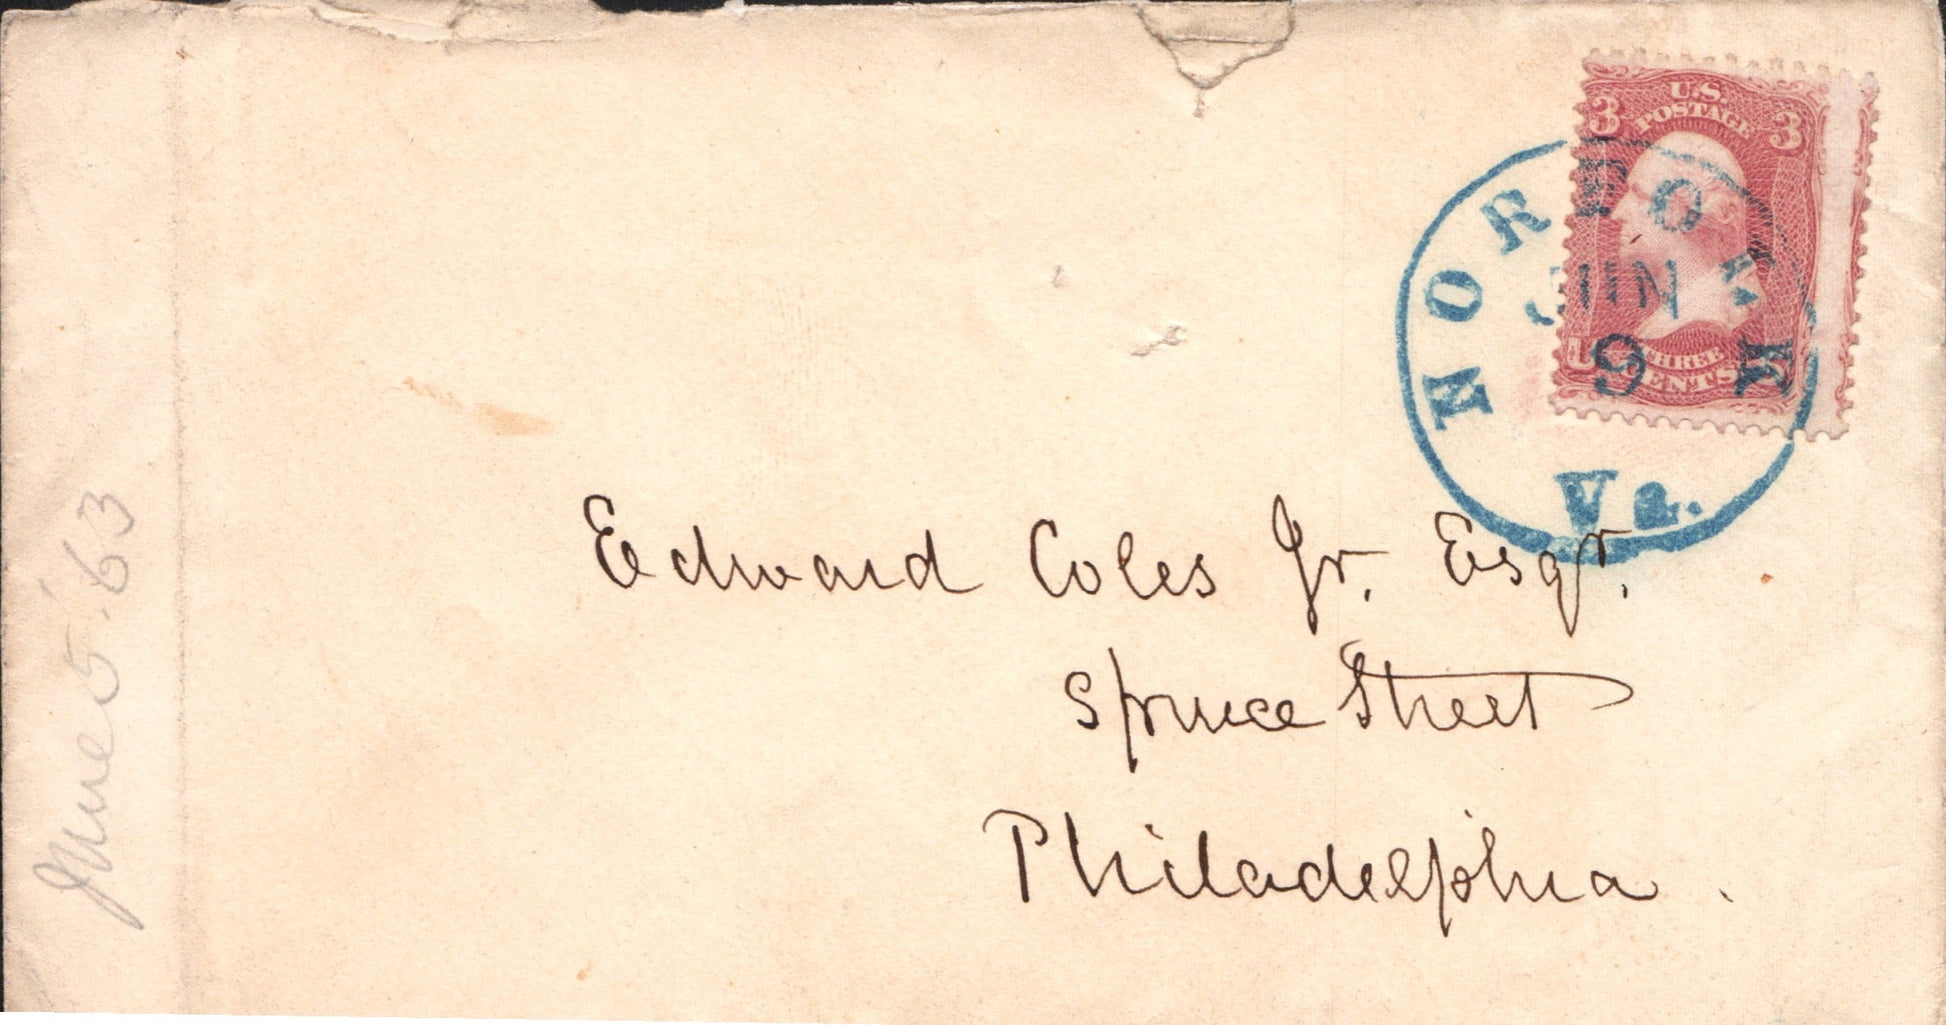 U.S.
POSTAGE
3 3
THREE
CENTS
NORFOLK
JUN
9
Va.
Edward Coles Jr. Esqr.
Spruce Street
Philadelphia.
June 5. '63